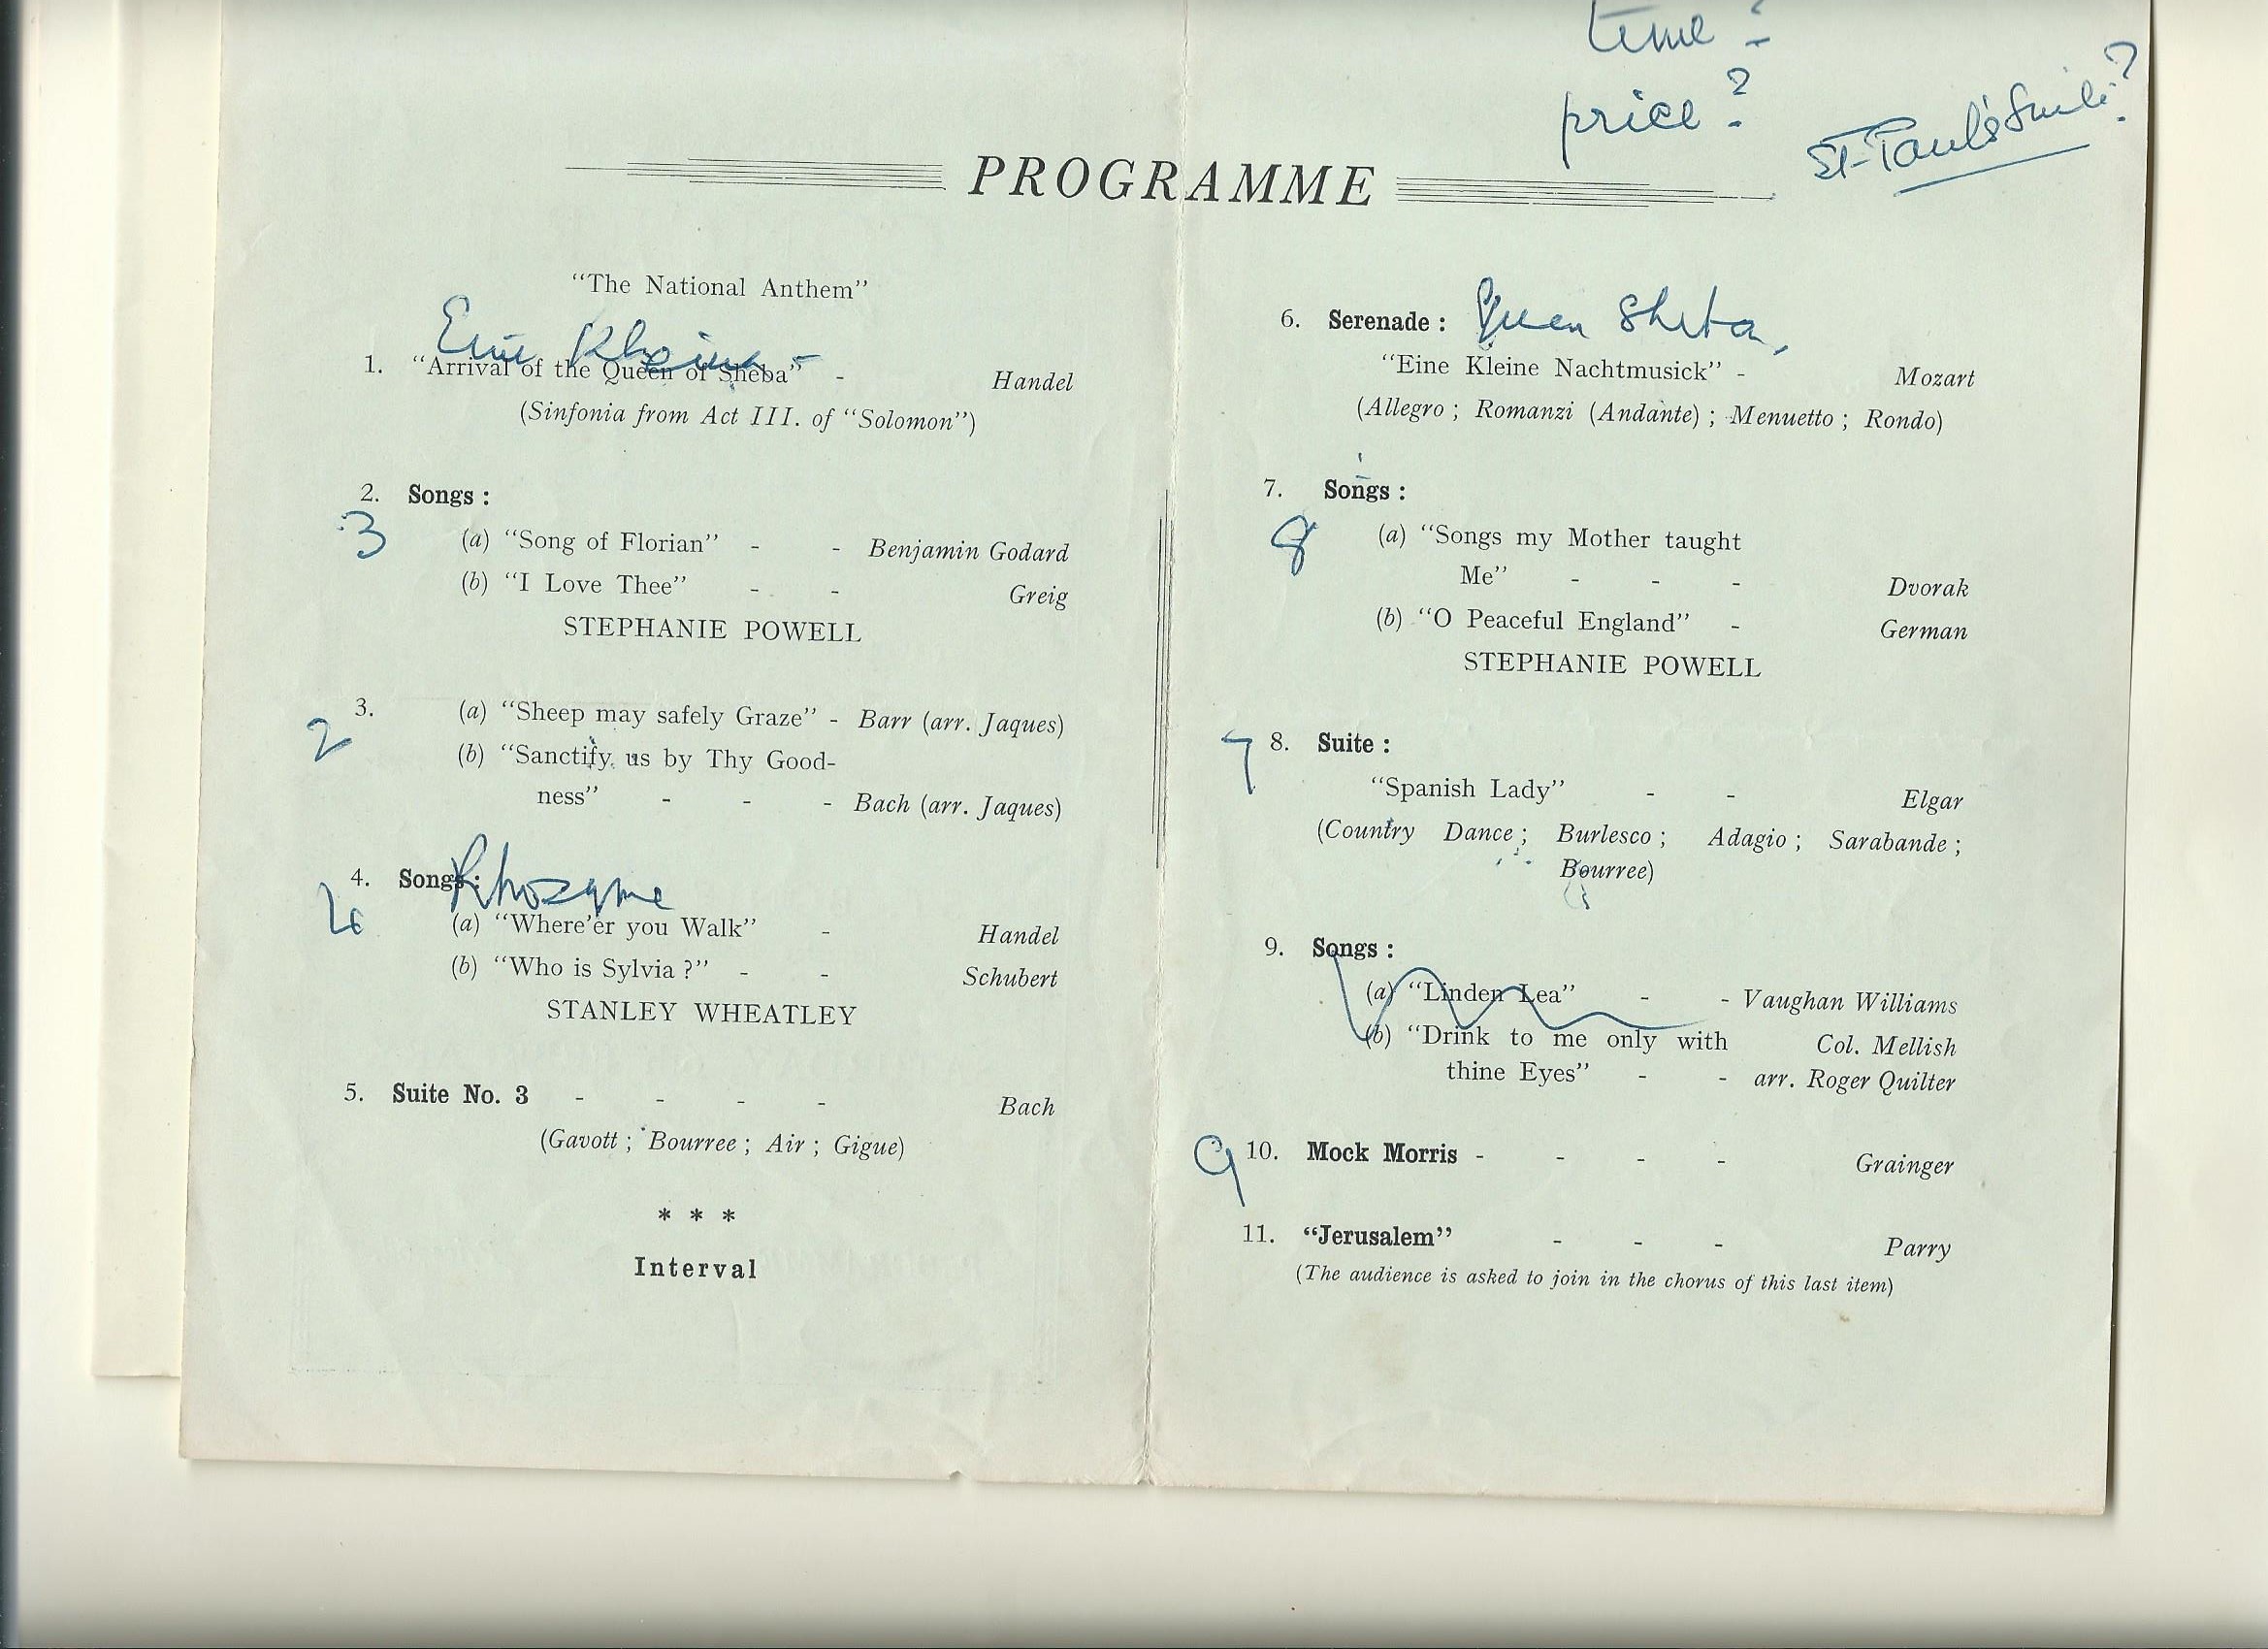 time?
price?
St-Paul's Suite?
PROGRAMME
"The National Anthem"
Eine Kleine
1. "Arrival of the Queen of Sheba" - Handel
(Sinfonia from Act III. of "Solomon")
2. Songs :
3
(a) "Song of Florian" - - Benjamin Godard
(b) "I Love Thee" - - Greig
STEPHANIE POWELL
3. (a) "Sheep may safely Graze" - Barr (arr. Jaques)
2
(b) "Sanctify us by Thy Good-
ness" - - - Bach (arr. Jaques)
4. Songs :
4
(a) "Where'er you Walk" - Handel
(b) "Who is Sylvia ?" - - Schubert
STANLEY WHEATLEY
5. Suite No. 3 - - - - Bach
(Gavott ; Bourree ; Air ; Gigue)
* * *
Interval
6. Serenade : Queen Sheba
"Eine Kleine Nachtmusick" - Mozart
(Allegro ; Romanzi (Andante) ; Menuetto ; Rondo)
7. Songs :
8
(a) "Songs my Mother taught
Me" - - - Dvorak
(b) "O Peaceful England" - German
STEPHANIE POWELL
7 8. Suite :
"Spanish Lady" - - Elgar
(Country Dance ; Burlesco ; Adagio ; Sarabande ;
Bourree)
9. Songs :
(a) "Linden Lea" - - Vaughan Williams
(b) "Drink to me only with Col. Mellish
thine Eyes" - - arr. Roger Quilter
9 10. Mock Morris - - - - Grainger
11. "Jerusalem" - - - Parry
(The audience is asked to join in the chorus of this last item)